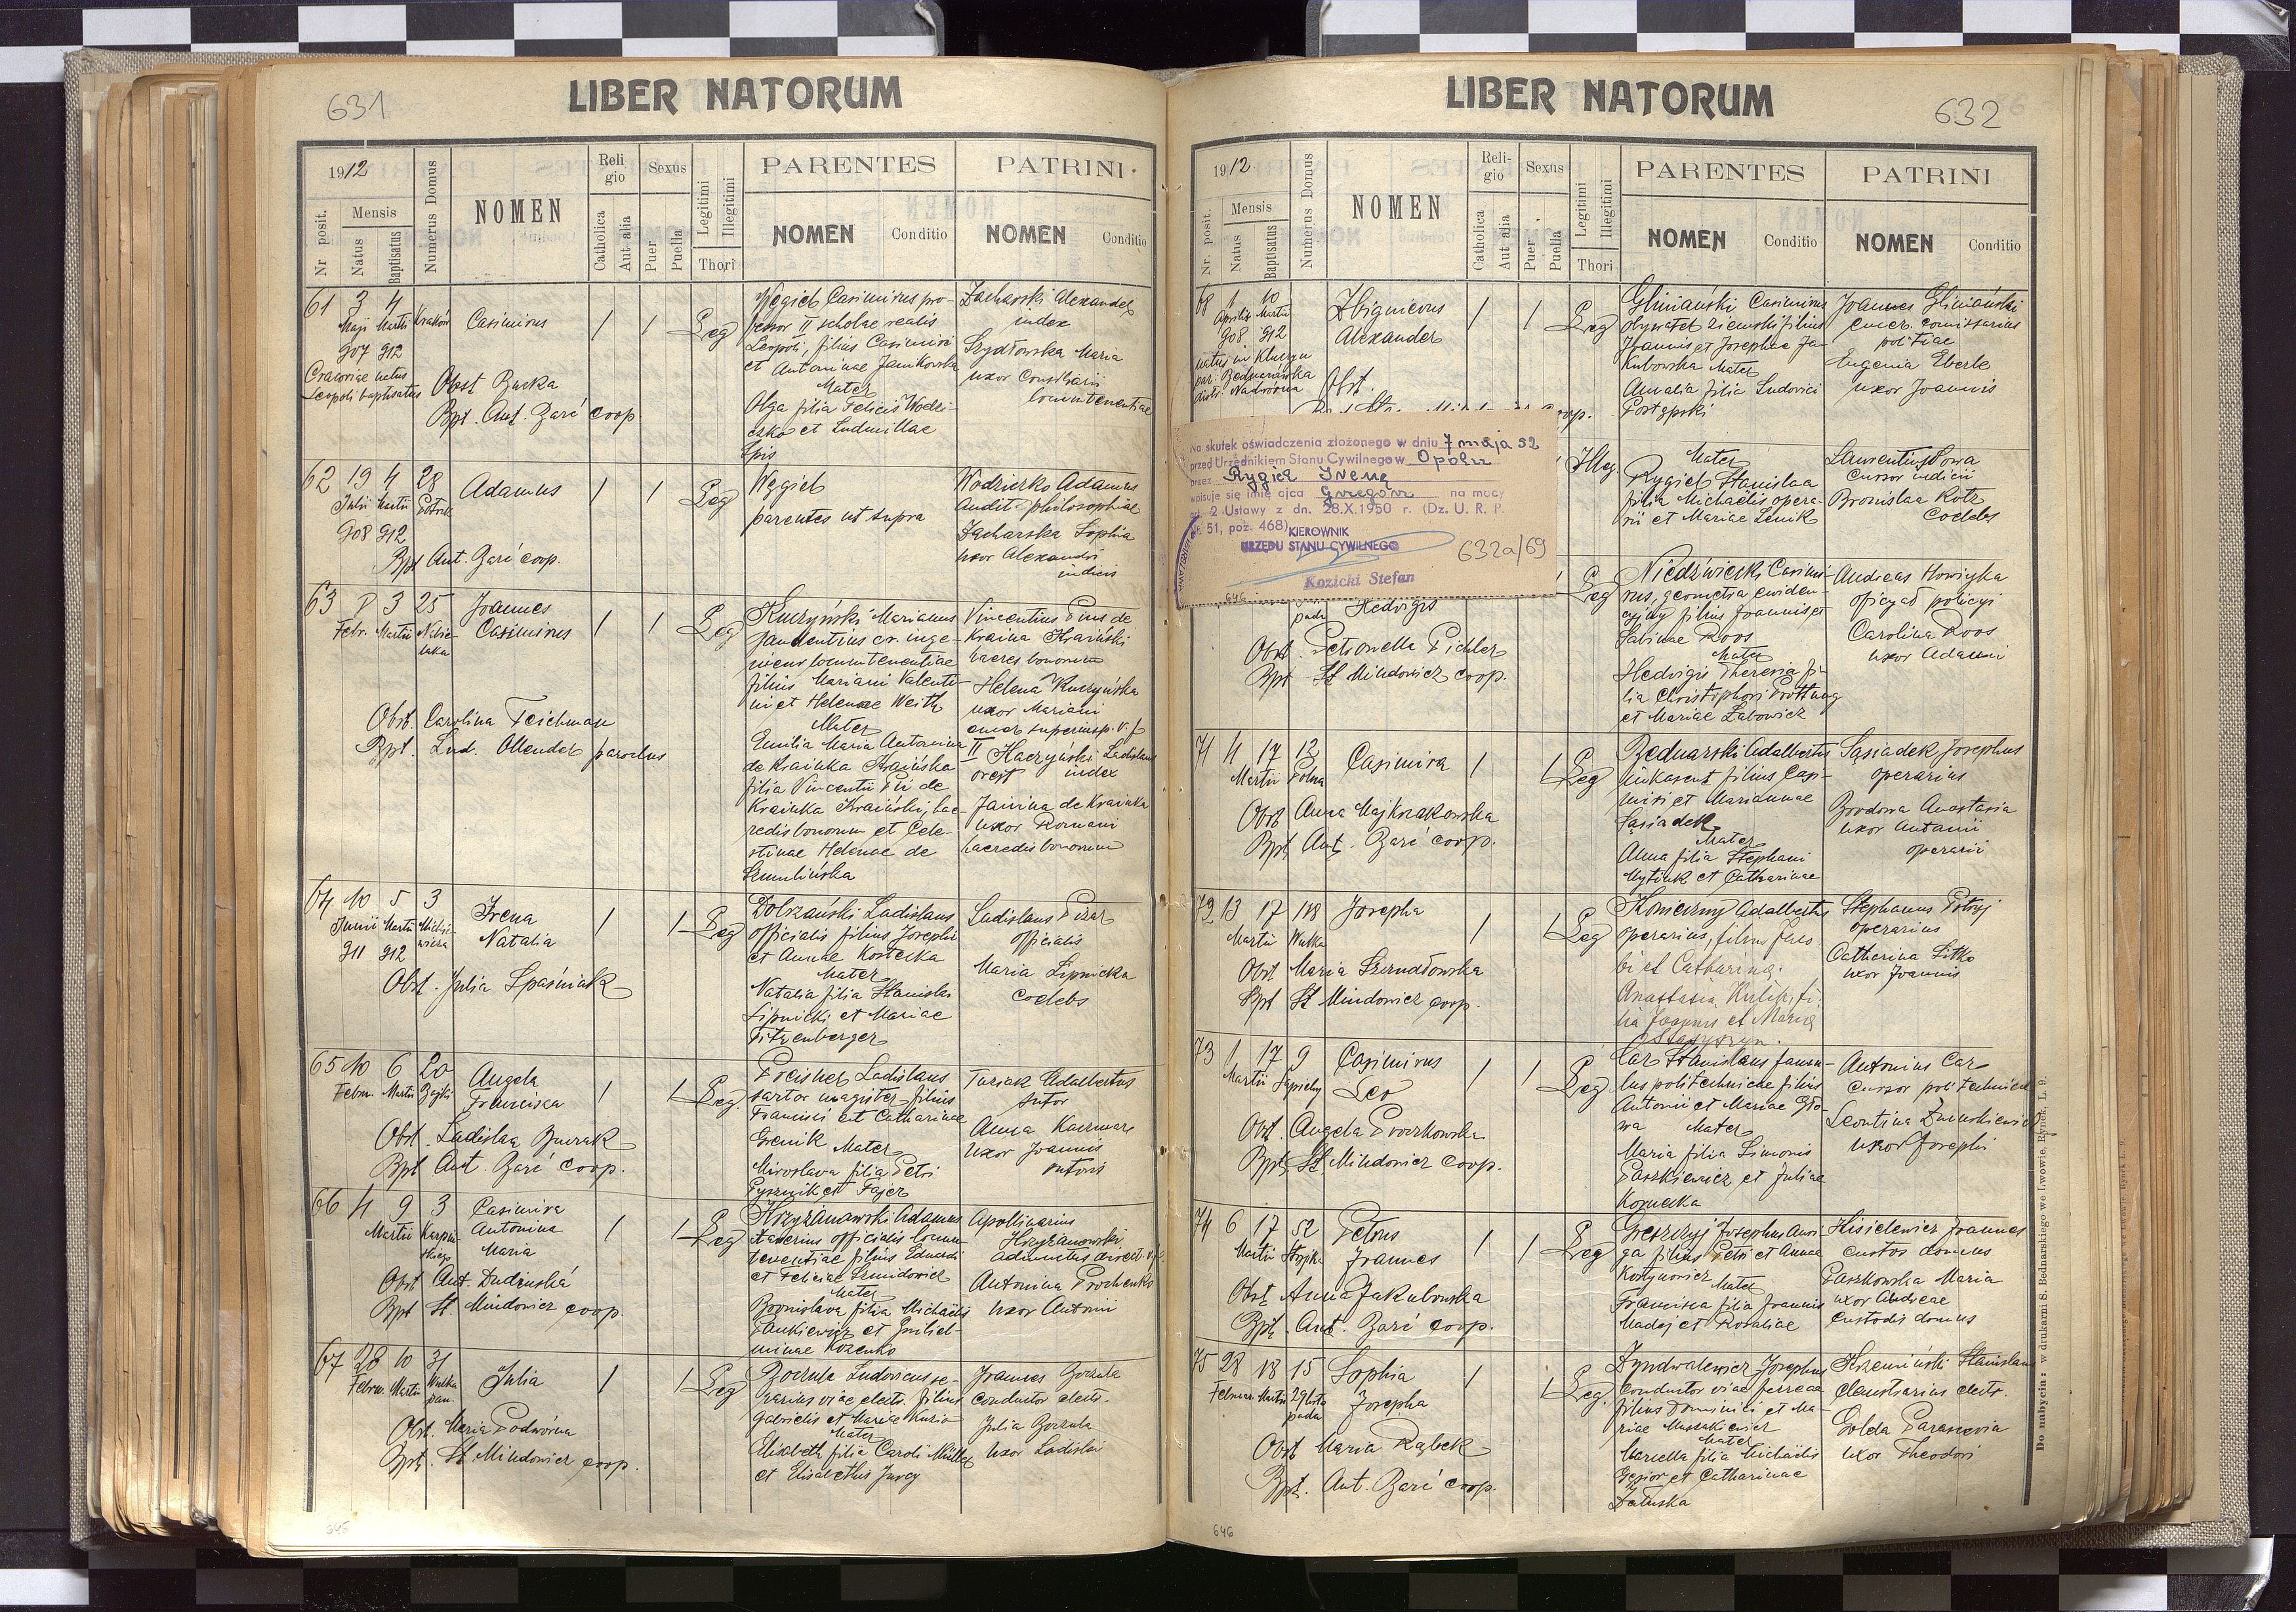 631
LIBER NATORUM
1912
Mensis
Nr posit.
Natus
Baptisatus
Numerus Domus
NOMEN
Religio
Catholica
Aut alia
Sexus
Puer
Puella
Legitimi
Illegitimi
Thori
PARENTES
NOMEN
Conditio
PATRINI
NOMEN
Conditio
61 3 4 Kraków Casimirus 1 1 Leg
Maji Martii
907 912
Cracoviae natus
Leopoli baptisatus
Obst
Bpt. Ant. Zaré coop
Węgiel Casimirus pro-
fessor II scholae realis
Leopoli, filius Casimiri
et Antoninae Janikowska
Mater
Olga filia Felicis Wodzi-
czko et Ludmillae
Zacharski Alexander
iudex
Szydłowska Maria
uxor Consiliarii
locumtenentiae
62 19 4 28 Adamus 1 1 Leg
Julii Martii
908 912
Bpt Ant. Zaré coop.
Węgiel
parentes ut supra
Wodziczko Adamus
Audit. philosophiae
Zacharska Sophia
uxor Alexandri
iudicis
63 8 3 25 Joannes
Febr. Martii Casimirus 1 1 Leg
Obst Carolina Teichman
Bpt. Lud. Ollender parochus
Kuczyński Marianus
filius Mariani Valenti-
ni et Helenae Weith
Mater
Emilia Maria Antonina
de Krainka Kraińska
filia Vincentii Pii de
Krainka Kraiński, hae-
redis bonorum et Cele-
stinae Helenae de
Szumlińska
Vincentius Pius de
Kraina Kraiński
haeres bonorum
Helena Kuczyńska
uxor Mariani
II Kaczyński Ladislaus
iudex
Janina de Krainka
uxor Romani
haeredis bonorum
64 10 5 3 Irena
Junii Martii Natalia 1 1 Leg
911 912
Obst. Julia Spaśniak
Dolzański Ladislaus
officialis filius Josephi
et Annae Kostecka
Mater
Natalia filia Stanislai
Lipnicki et Mariae
Fitzenberger
Ladislaus Pisar
officialis
Maria Lipnicka
coelebs
65 10 6 20 Angela
Febru. Martii Francisca 1 1 Leg.
Obst. Ladislaa
Bpt Ant. Zaré coop.
Preisner Ladislaus
sartor magister filius
Francisci et Catharinae
Mater
Miroslava filia Petri
Adalbertus
sutor
Anna Kaczmar
uxor Joannis
sutoris
66 4 9 3 Casimira
Martii Antonina 1 1 Leg
Maria
Obst Ant. Dudzińska
Bpt St Mindowicz coop.
Krzyżanowski Adamus
Xaverius officialis locum-
tenentiae filius Eduardi
et Feliciae Szmidowicz
Mater
Bronislava filia Michaelis
Pankiewicz et Guiliel-
minae Kozenko
Apollinarius
Krzyżanowski
Antonina
uxor Antonii
67 28 10 31 Julia 1 1 Leg
Febru. Martii
Obst. Maria Podworna
Bpt. St Mindowicz coop.
Ludovicus
viae electr. filius
Gabrielis et Mariae
Mater
Elisabeth filia Caroli Müller
et Elisabethis
Joannes
conductor electr.
Julia
uxor Ladislai
645
LIBER NATORUM
632
1912
Mensis
Nr. posit.
Natus
Baptisatus
Numerus Domus
NOMEN
Religio
Catholica
Aut alia
Sexus
Puer
Puella
Legitimi
Illegitimi
Thori
PARENTES
NOMEN
Conditio
PATRINI
NOMEN
Conditio
68 1 10 Zbignieus
Aprilis Martii Alexander 1 1 Leg
908 912
Obst.
Gliniański Casimirus
obywatel ziemski filius
Joannis et Josephae Ja-
kubowska Mater
Amalia filia Ludovici
Postępski
Joannes Gliniański
emer. comissarius
politiae
Eugenia Eberle
uxor Joannis
Na skutek oświadczenia złożonego w dniu 7 maja 52
przed Urzędnikiem Stanu Cywilnego w Opolu
przez Rygiel Irenę
wpisuje się imię ojca Grzegorz na mocy
art. 2 Ustawy z dn. 28.X.1950 r. (Dz. U. R. P.
Nr. 51, poz. 468)
KIEROWNIK
URZĘDU STANU CYWILNEGO
632a/69
Kozicki Stefan
646
Illeg.
Mater
Rygiel Stanislaa
filia Michaelis opera-
rii et Mariae Lenik
Laurentius Sowa
Cursor iudicii
Bronislaa Kotz
coelebs
Hedvigis
Leg
Obst. Petronella Pichler
Bpt St Mindowicz coop.
Niedźwiecki Casimi-
rus, geometra ewiden-
cyjny filius Joannis et
Sabinae Roos
Mater
Hedvigis Theresia fi-
lia Christiphori Prottung
et Mariae Labowicz
Andreas Howicka
oficyał policyi
Carolina Roos
uxor Adami
71 4 17 12 Casimira 1 1 Leg
Martii Polna
Obst Anna Majknakowska
Bpt Ant. Zaré coop.
Bednarski Adalbertus
inkasent filius Casi-
miri et Mariannae
Sąsiadek
Mater
Anna filia Stephani
Mytink et Catharinae
Sąsiadek Josephus
operarius
Brodowa Anastasia
uxor Antonii
operarii
72 13 17 118 Josepha 1 1 Leg
Martii Wulka
Obst Maria Szczudłowska
Bpt St Mindowicz coop.
Konieczny Adalbertus
operarius, filius Jaco
bi et Catharina.
Anastasia Kulik, fi-
lia Joannis et Maria
Stephanus
operarius
Catharina Sitko
uxor Joannis
73 1 17 9 Casimirus
Martii Sapiehy Leo 1 1 Leg.
Obst. Angela Proczkowska
Bpt St Mindowicz coop.
Car Stanislaus famu-
lus politechnicae filius
Antonii et Mariae Gło-
wa Mater
Maria filia Simonis
Paszkiewicz et Juliae
Kopiecka
Antonius Car
Cursor politechnicae
Leontina
uxor Josephi
74 6 17 52 Petrus
Martii Joannes 1 1 Leg
Obst Anna Jakubowska
Bpt. Ant. Zaré coop.
Josephus Auri-
ga filius Petri et Annae
Kostynowicz Mater
Francisca filia Joannis
Madej et Rosaliae
Kisielewicz Joannes
Custos domus
Paszkowska Maria
uxor Andreae
Custodis domus
75 28 18 15 Sophia
Februar. Martii 29 listo Josepha 1 1 Leg.
pada
Obst Maria Rąbek
Bpt. Ant. Zaré coop.
Dyndwalewicz Josephus
Conductor viae ferreae
filius Dominici et Ma-
riae
Mater
Marcella filia Michaelis
Gęsior et Catharinae
Dałuska
Krzemiński Stanislaus
Claustrarius electr.
Golda Parascevia
uxor Theodori
646
Do nabycia: w drukarni S. Bednarskiego we Lwowie, Rynek, L. 9.